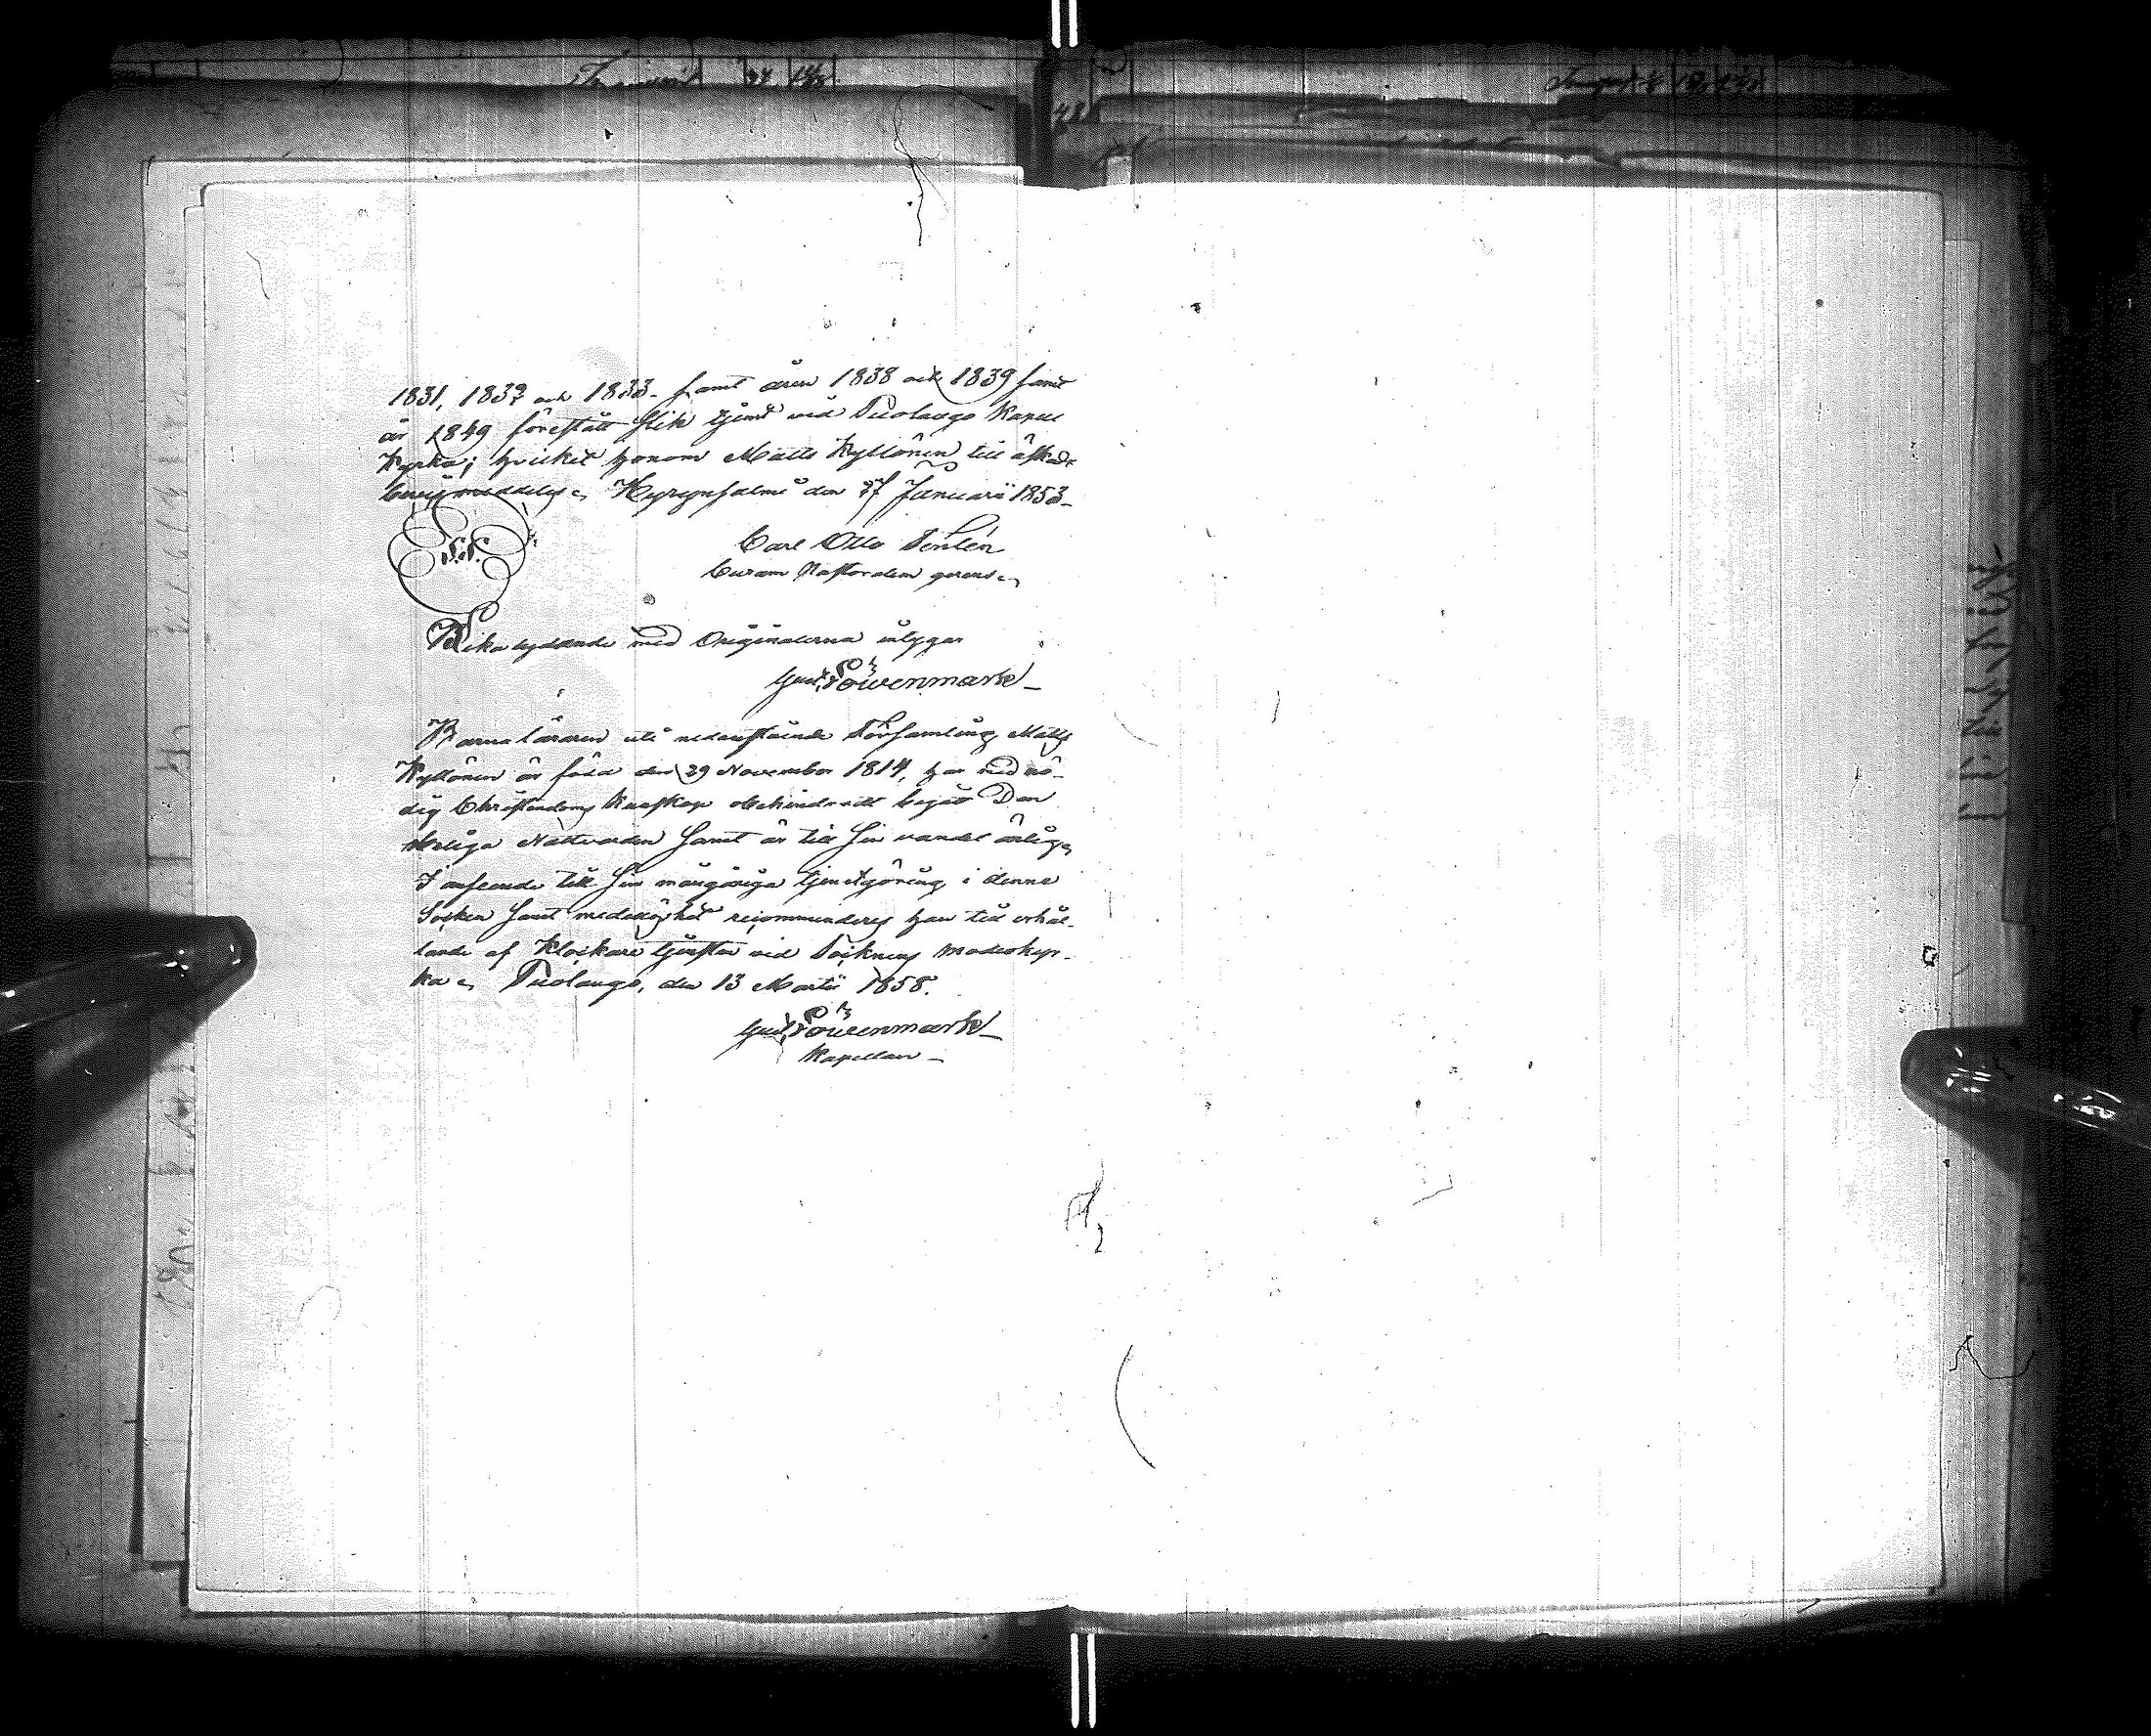 1831, 1832 och 1833. samt åren 1838 och 1839 samt
år 1849 förestått slik tjenst vid Puolango Kapell
Kyrka; hvilket honom Matts Kyllönen till åstad.
bevis meddelas. Hyrynsalmi den 27 Januarii 1853.
L.S.
Carl Otto
Curam Pastoralem gerens.
Lika lydande med Originalerna intygar
Gust. Löwenmark
Barnaläraren uti nedanstående Församling Matts
Kyllönen är född den 29 November 1814, har med nö-
dig Christendoms kunskap obehindradt begått Den
Heliga Nattvarden samt är till sin vandel ärlig.
I anseende till sin mångåriga tjenstgöring i denna
Socken samt medellöshet recommenderas han till erhål-
lande af Klockare tjensten vid Socknens moderkyr-
ka. Puolango, den 13 Martii 1858.
Gust. Löwenmark
Kapellan